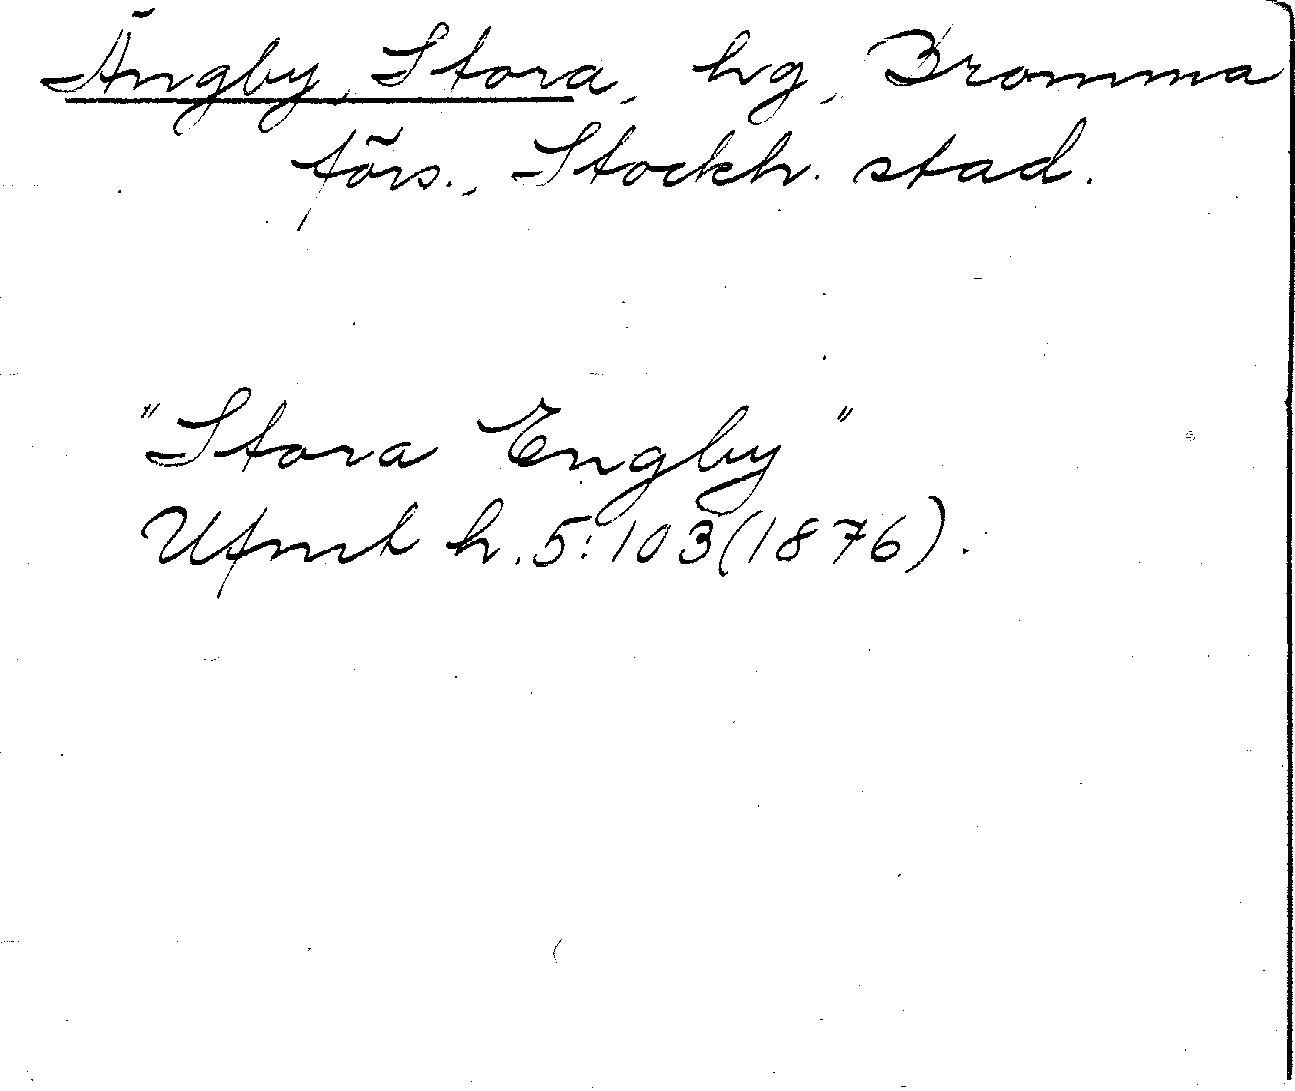 Ängby, Stora, hg, Bromma
förs., Stockh. stad.
"Stora Engby"
Ufmt h. 5:103(1876).